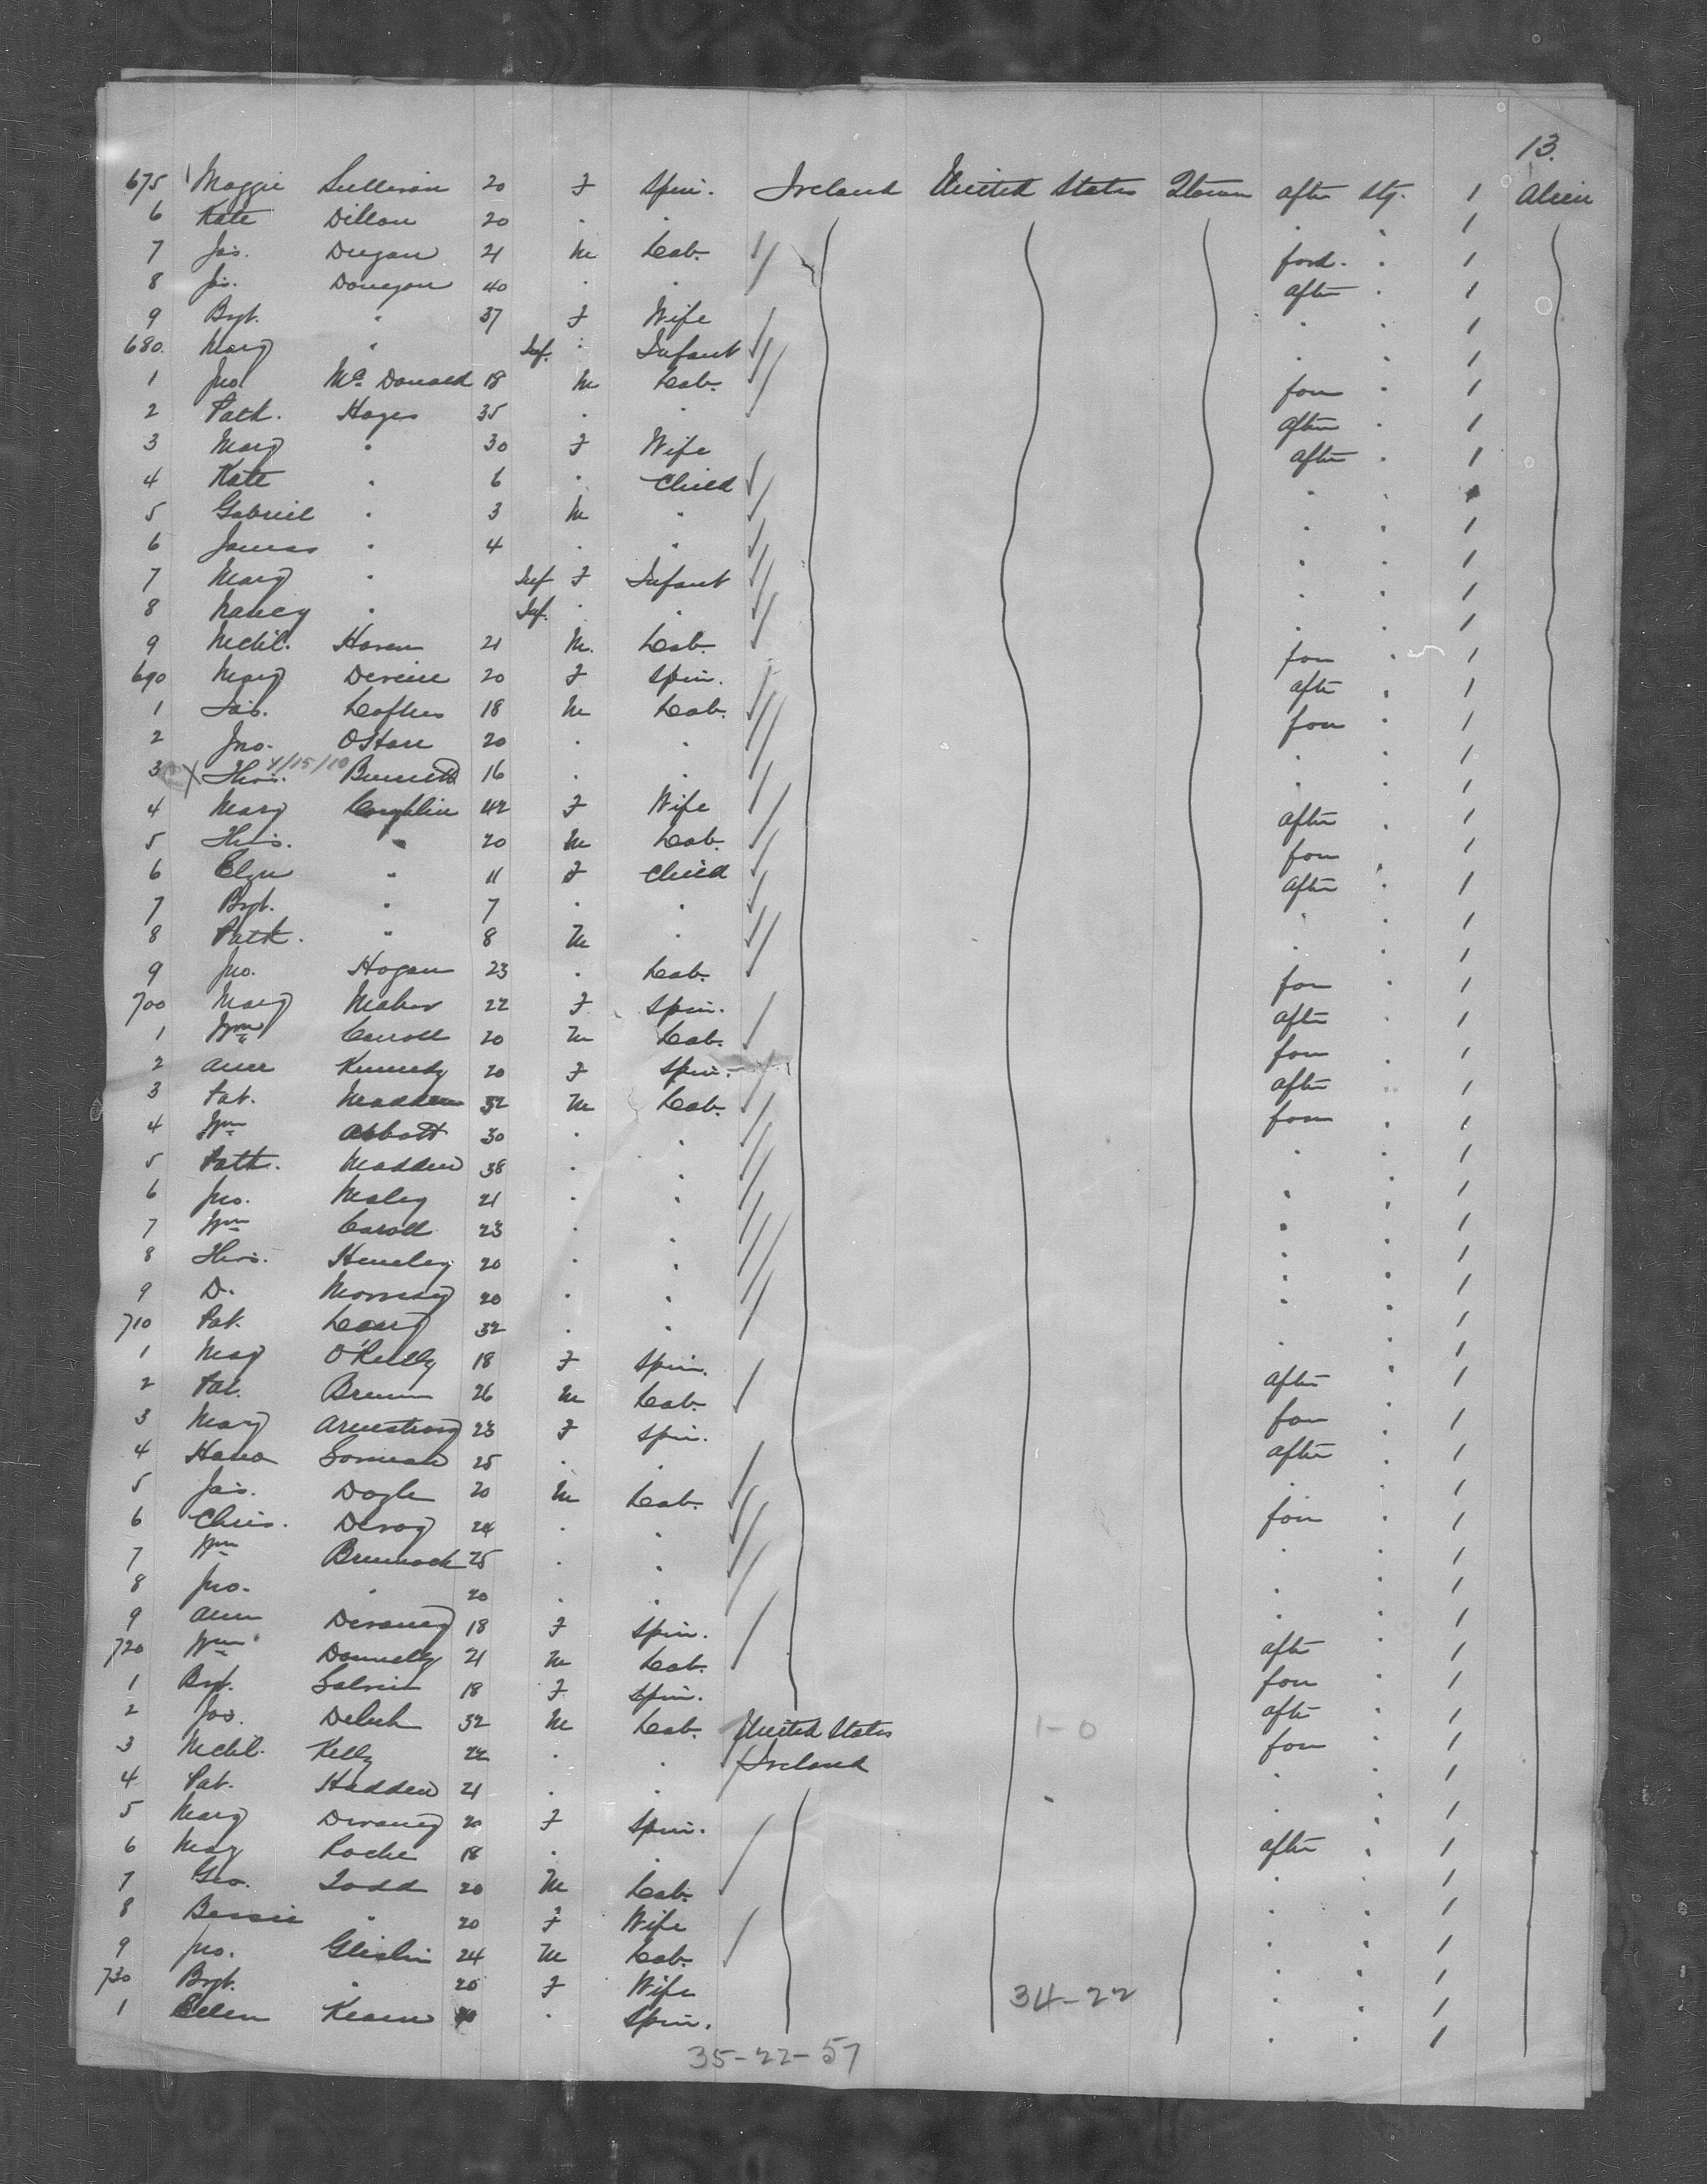 13.
675 Maggie Sullivan 20 F Spin. Ireland United States Qtown after Stg. 1 Alien
6 Kate Dillon 20 . . . . 1
7 Jas. Dugan 21 M Lab. ford. . 1
8 Jas. Donegan 40 . . after . 1
9 Bgt. " 37 F Wife . . 1
680. Mary " Inf. . Infant . . 1
1 Jno. Mc Donald 18 M Lab. for . 1
2 Patk. Hayes 35 . . after . 1
3 Mary " 30 F Wife after . 1
4 Kate " 6 . Child . . 1
5 Gabriel " 3 M " . . 1
6 James " 4 . " . . 1
7 Mary " Inf F Infant . . 1
8 Nancy " Inf. . . . . 1
9 Mchl. Haren 21 M. Lab. for . 1
690 Mary Devine 20 F Spin. after . 1
1 Jas. Loftus 18 M Lab. for . 1
2 Jno. O'Hare 20 . . . . 1
3 X Thos. 4/15/10 Bennett 16 . . . . 1
4 Mary Coughlin 42 F Wife after . 1
5 Thos. " 20 M Lab. for . 1
6 Elzn " 11 F Child after . 1
7 Bgt. " 7 . . . . 1
8 Patk. " 8 M . . . 1
9 Jno. Hogan 23 . Lab. for . 1
700 Mary Maher 22 F Spin. after . 1
1 Wm Carroll 20 M Lab. for . 1
2 Anne Kennedy 20 F Spin. after . 1
3 Pat. Madden 32 M Lab. for . 1
4 Wm Abbott 30 . . . . 1
5 Patk. Madden 38 . . . . 1
6 Jno. Maley 21 . . . . 1
7 Wm Caroll 23 . . . . 1
8 Thos. Heneley 20 . . . . 1
9 D. Morrisey 20 . . . . 1
710 Pat. Leary 32 . . . . 1
1 May O'Reilly 18 F Spin. after . 1
2 Pat. 26 M Lab. for . 1
3 Mary Armstrong 23 F Spin. after . 1
4 Hana 25 . . . . 1
5 Jas. Doyle 20 M Lab. for . 1
6 Chris. Devoy 24 . . . . 1
7 Wm Brunnock 25 . . . . 1
8 Jno. " 20 . . . . 1
9 Ann Devaney 18 F Spin. after . 1
720 Wm Donnelly 21 M Lab. for . 1
1 Bgt. Galvin 18 F Spin. after . 1
2 Jos. 32 M Lab. United States 1-0 for . 1
3 Mchl. Kelly 22 . . Ireland . . 1
4 Pat. Hadden 21 . . . . 1
5 Mary Devaney 20 F Spin. after . 1
6 May Roche 18 . . . . 1
7 Geo. Todd 20 M Lab. . . 1
8 Bessie " 20 F Wife . . 1
9 Jno. Glislin 24 M Lab. . . 1
730 Bgt. " 20 F Wife 34-22 . . 1
1 Ellen Keane . Spin. . . 1
35-22-57